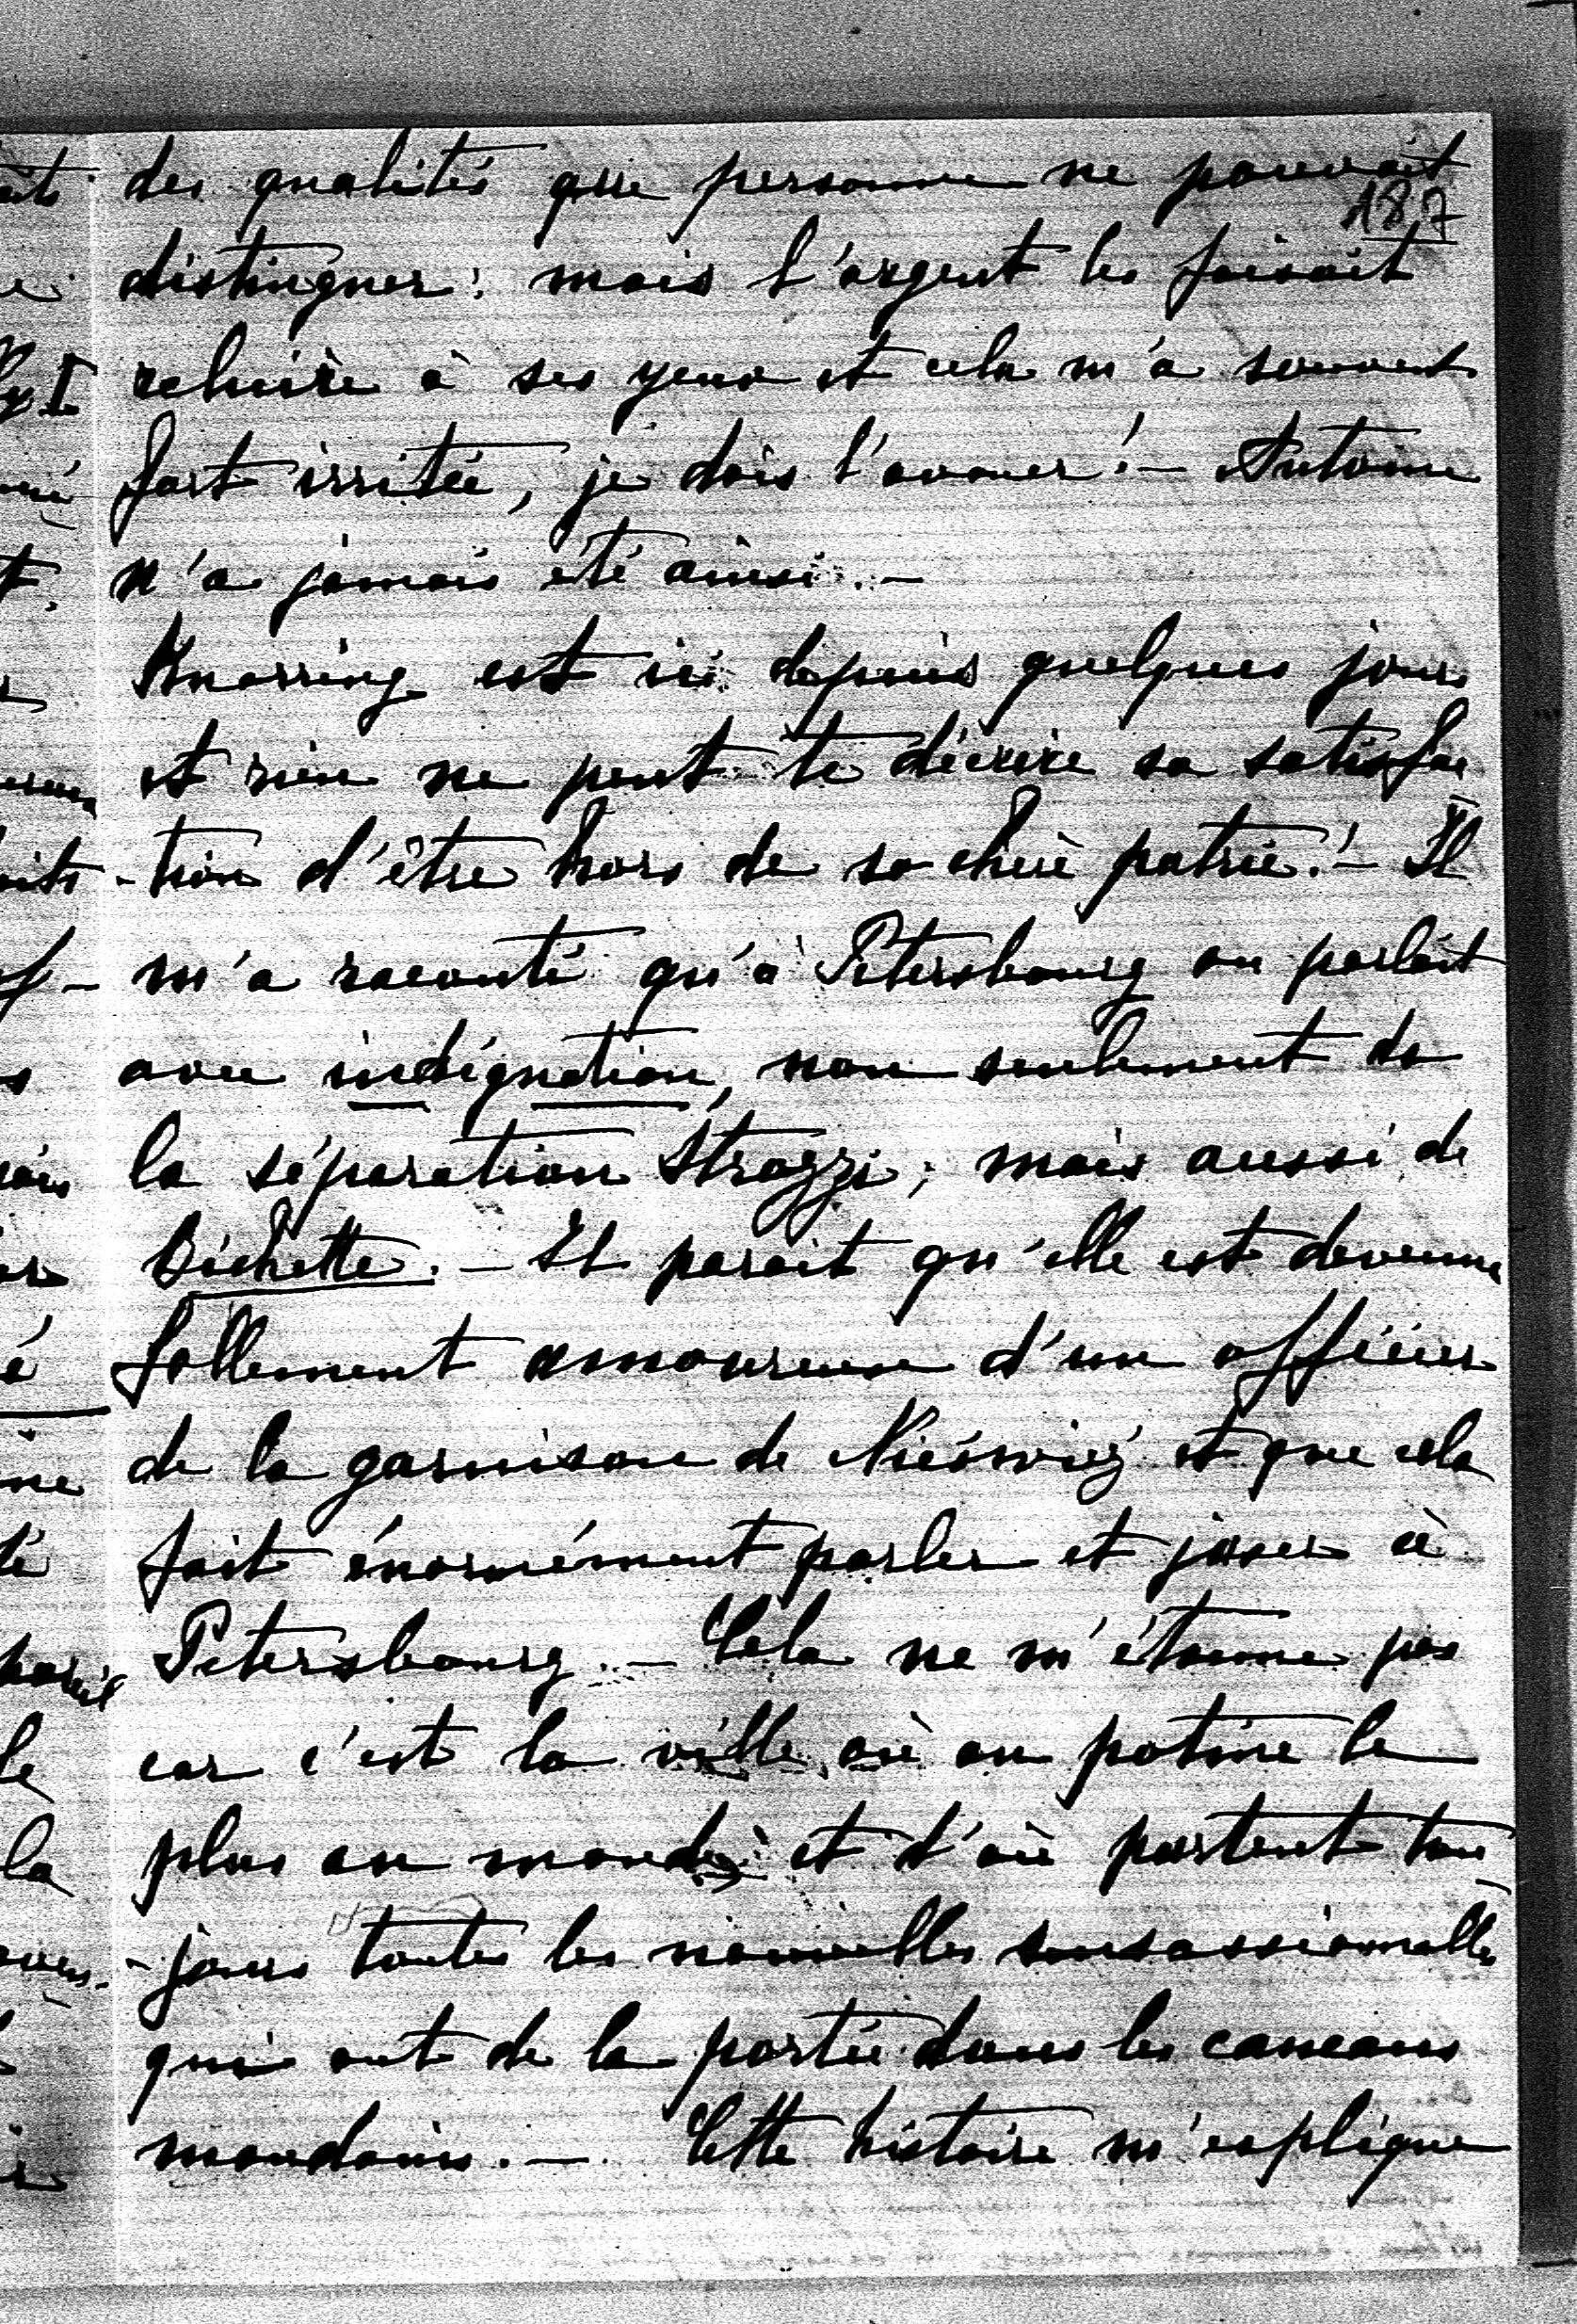 des qualités que personne ne pouvait
187
distinguer: mais l'argent les faisait
reluire à ses yeux et cela m'a souvent
fort irritée, je dois l'avouer! — Antoine
n'a jamais été ainsi. —
Knorring est ici depuis quelques jours
et rien ne peut te décrire sa satisfac
-tion d'être hors de sa chère patrie! — Il
m'a raconté qu'à Pétersbourg on parlait
avec indignation, non seulement de
la séparation Strozzi; mais aussi de
Bichette. — Il parait qu'elle est devenue
follement amoureuse d'un officier
de la garnison de Nieśwież et que cela
fait énormément parler et jaser à
Pétersbourg. — Cela ne m'étonne pas
car c'est la ville où on potine le
plus au monde et d'où partent tou
-jours toutes les nouvelles sensassionnelles
qui ont de la portée dans les cancans
mondains. — Cette histoire m'explique